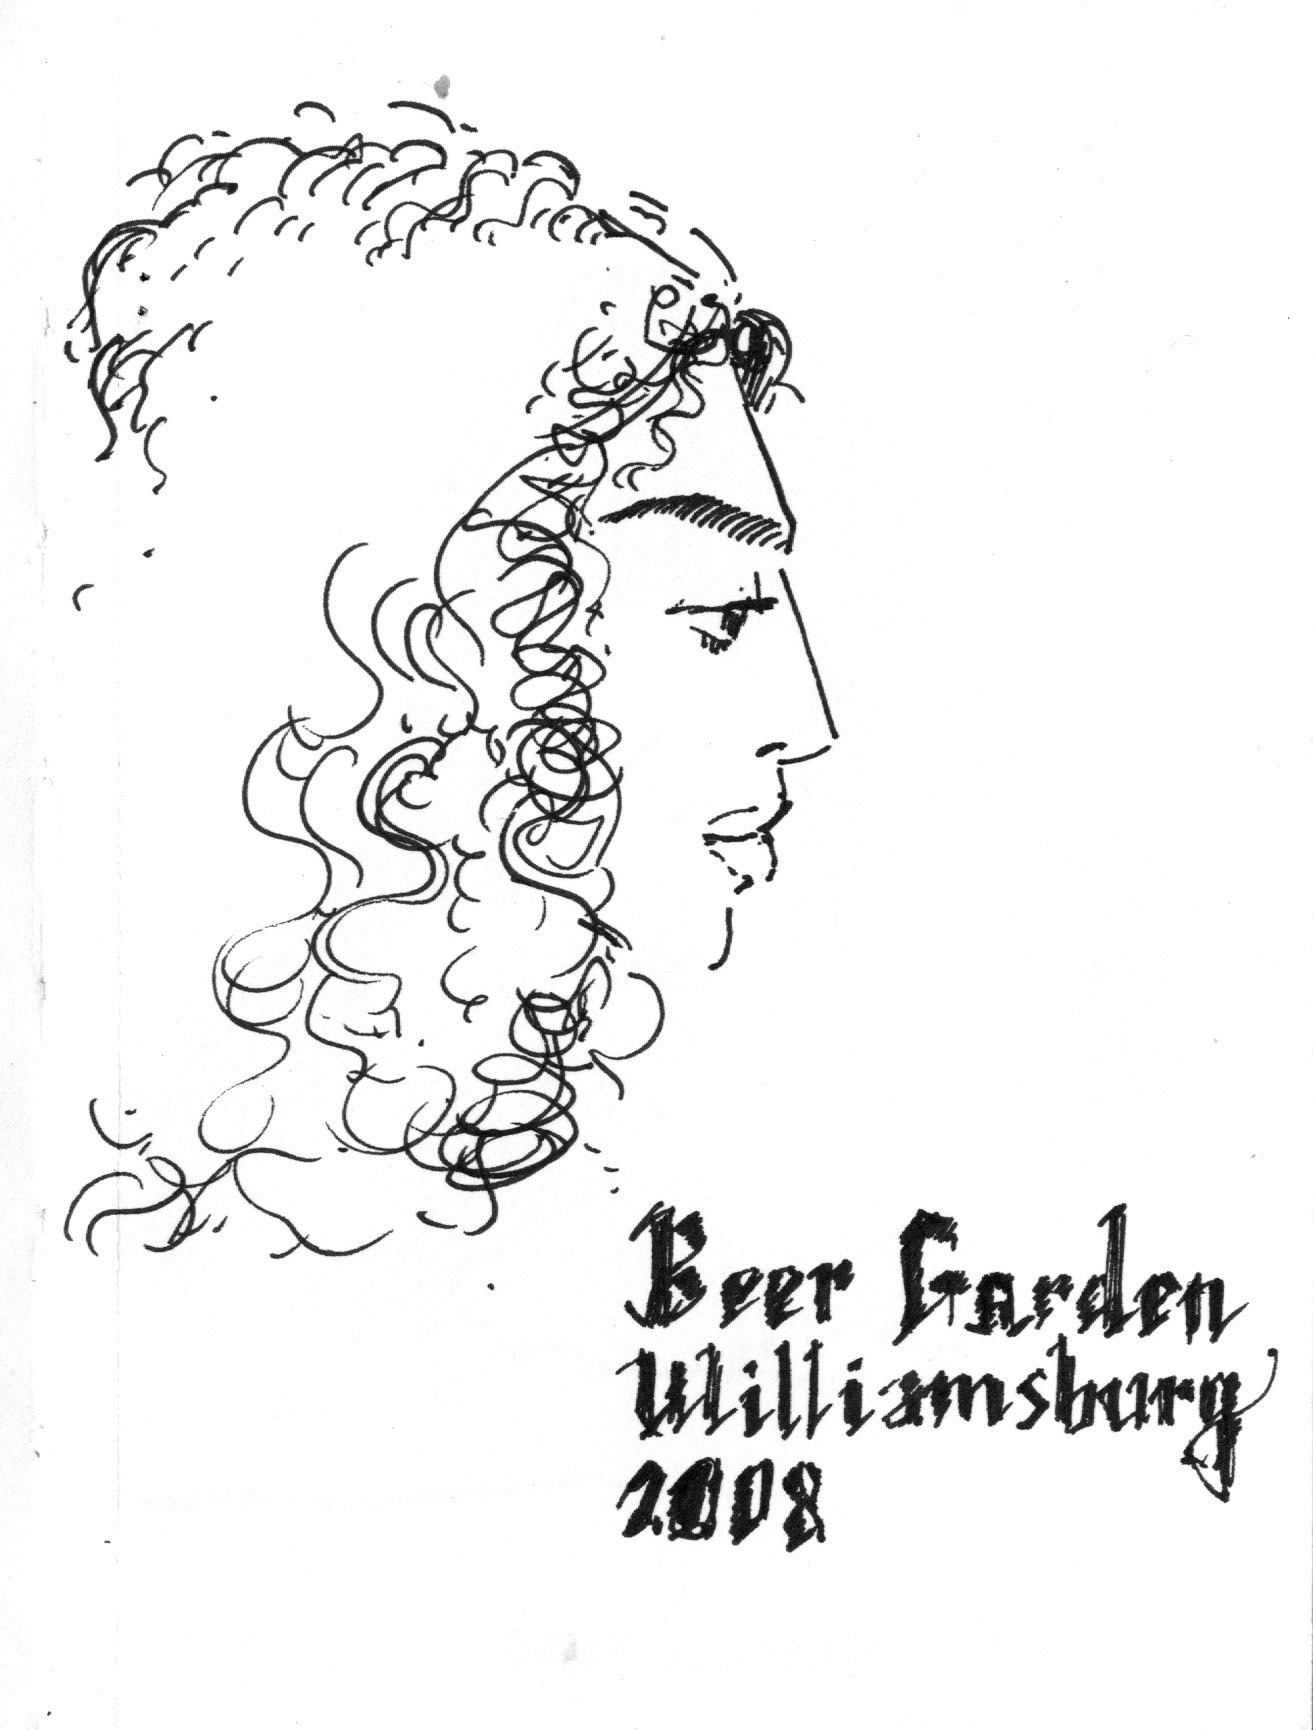 Beer Garden
Williamsburg
2008